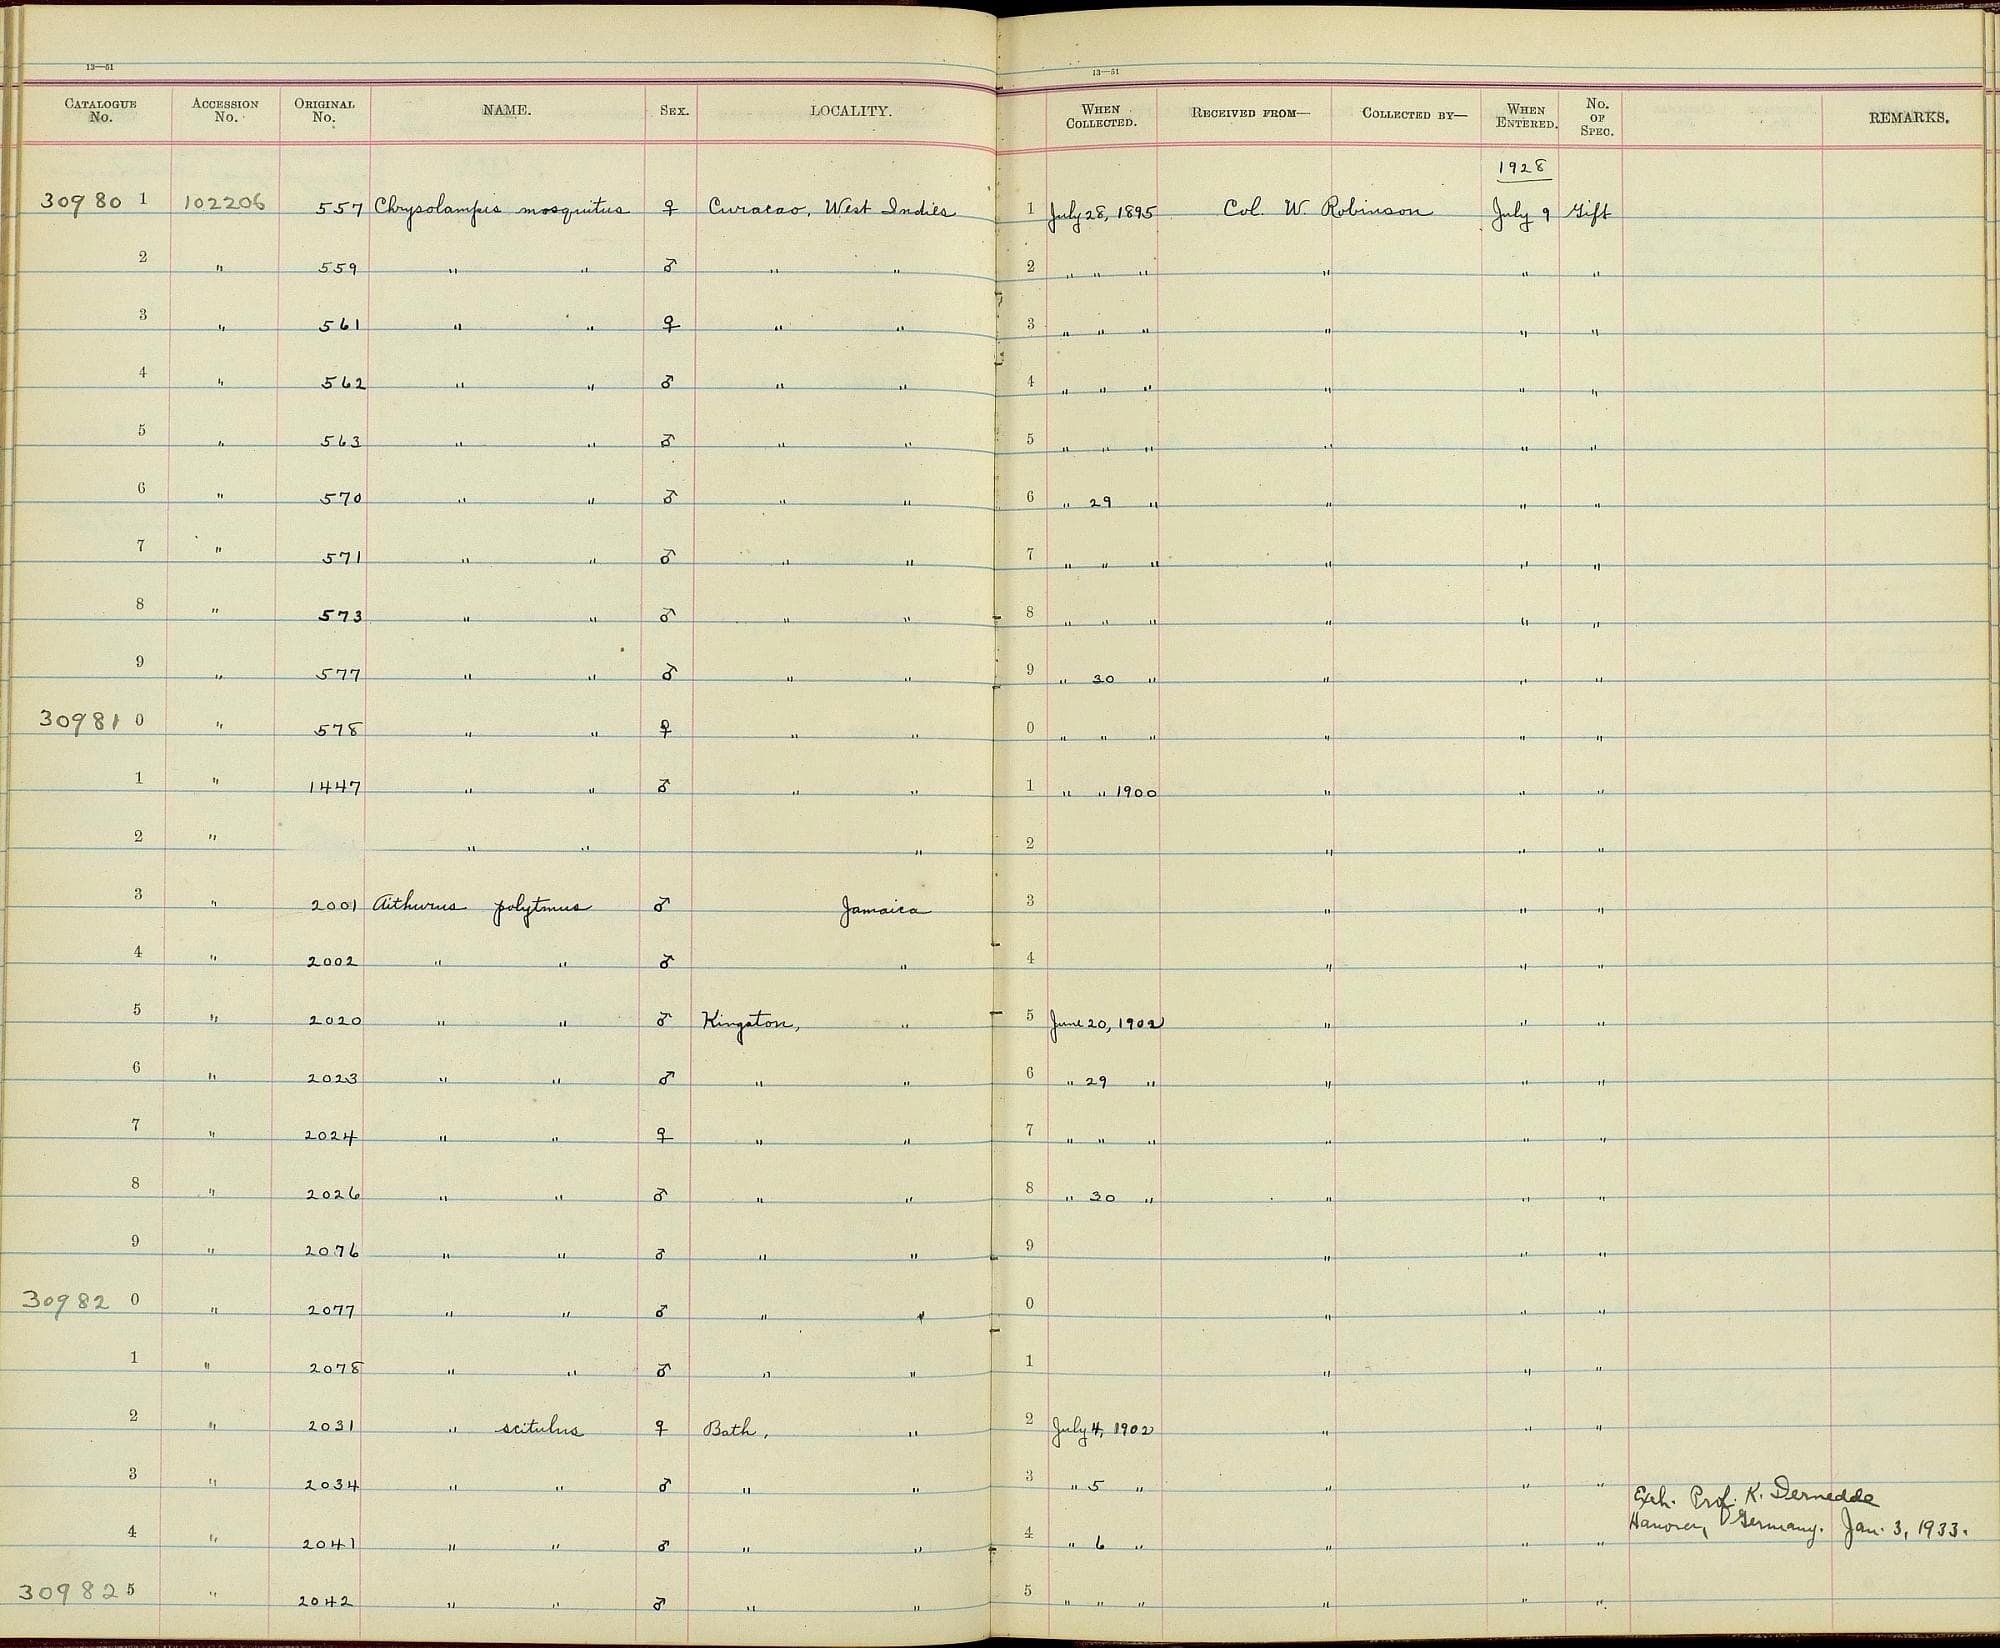 13—51 13—51
CATALOGUE No. ACCESSION No. ORIGINAL No. NAME. SEX. LOCALITY. WHEN COLLECTED. RECEIVED FROM— COLLECTED BY— WHEN ENTERED. No. OF SPEC. REMARKS.
1928
30980 1 102206 557 Chrysolampis mosquitus ♀ Curacao, West Indies 1 July 28, 1895 Col. W. Robinson July 9 Gift
2 " 559 " " ♂ " " 2 " " " " " "
3 " 561 " " ♀ " " 3 " " " " " "
4 " 562 " " ♂ " " 4 " " " " " "
5 " 563 " " ♂ " " 5 " " " " " "
6 " 570 " " ♂ " " 6 " 29 " " " "
7 " 571 " " ♂ " " 7 " " " " " "
8 " 573 " " ♂ " " 8 " " " " " "
9 " 577 " " ♂ " " 9 " 30 " " " "
30981 0 " 578 " " ♀ " " 0 " " " " " "
1 " 1447 " " ♂ " " 1 " " 1900 " " "
2 " " " " 2 " " "
3 " 2001 Aithurus polytmus ♂ Jamaica 3 " " "
4 " 2002 " " ♂ " 4 " " "
5 " 2020 " " ♂ Kingston, " 5 June 20, 1902 " " "
6 " 2023 " " ♂ " " 6 " 29 " " " "
7 " 2024 " " ♀ " " 7 " " " " " "
8 " 2026 " " ♂ " " 8 " 30 " " " "
9 " 2076 " " ♂ " " 9 " " "
30982 0 " 2077 " " ♂ " " 0 " " "
1 " 2078 " " ♂ " " 1 " " "
2 " 2031 " scitulus ♀ Bath, " 2 July 4, 1902 " " "
3 " 2034 " " ♂ " " 3 " 5 " " " " Exh. Prof. K. Dernedde
Hanover, Germany. Jan. 3, 1933.
4 " 2041 " " ♂ " " 4 " 6 " " " "
30982 5 " 2042 " " ♂ " " 5 " " " " " "